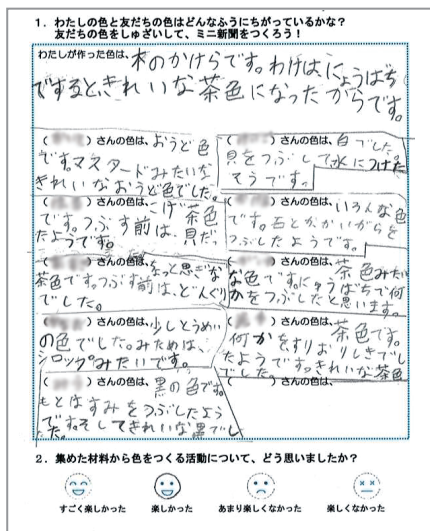 1. わたしの色と友だちの色はどんなふうにちがっているかな？
友だちの色をしゅざいして、ミニ新聞をつくろう！
わたしが作った色は、木のかけらです。わけは、にょうばち
ですると、きれいな茶色になったからです。
( ) さんの色は、おうど色
です。マスタードみたいな
きれいなおうど色でした。
( ) さんの色は、白でした。
貝をつぶして水につけた
そうです。
( ) さんの色は、こげ茶色
です。つぶす前は、貝だっ
たようです。
( ) さんの色は、いろんな色
です。石とかかいがらを
つぶしたようです。
( ) さんの色は、
茶色です。つぶす前は、どんぐり
でした。
( ) さんの色は、茶色みたい
な色です。にゅうばちで何
かをつぶしたと思います。
( ) さんの色は、少しとうめい
の色でした。みためは、
シロップみたいです。
( ) さんの色は、茶色です。
何かをすりおりしきでし
たようです。きれいな茶色
でした。
( ) さんの色は、黒の色です。
もとはすみをつぶしたよう
です。そしてきれいな黒でし
た。
( ) さんの色は、
2. 集めた材料から色をつくる活動について、どう思いましたか？
すごく楽しかった 楽しかった あまり楽しくなかった 楽しくなかった